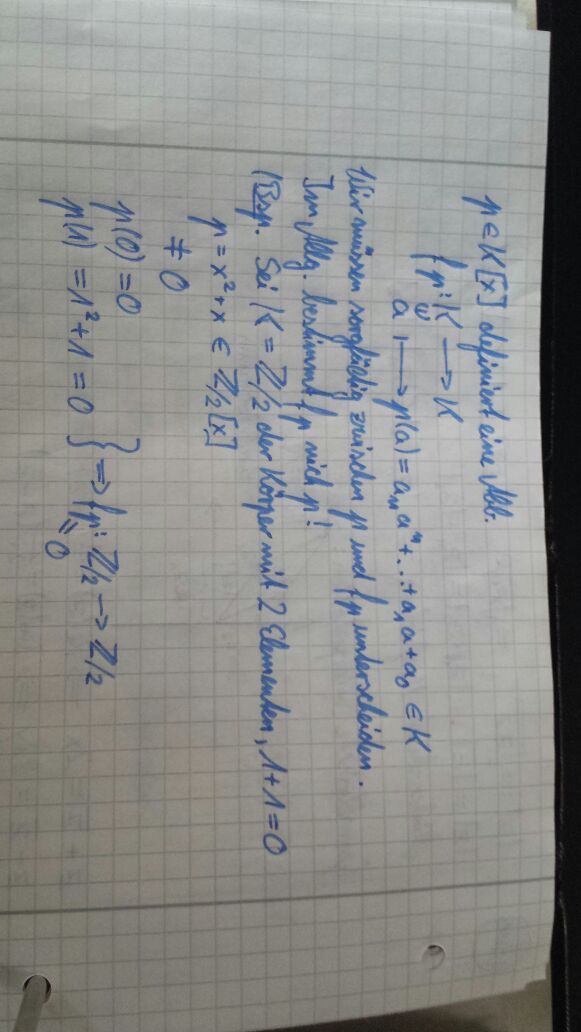 p ∈ K[x] definiert eine Abb.
f_p: K → K
a ↦ p(a) = a_n a^n + ... + a_1 a + a_0 ∈ K
Wir müssen sorgfältig zwischen p und f_p unterscheiden.
Im Allg. bestimmt f_p nich p!
Bsp. Sei K = Z/2 der Körper mit 2 Elementen, 1+1=0
p = x² + x ∈ Z/2[x]
≠ 0
p(0) = 0
p(1) = 1² + 1 = 0 } ⇒ f_p: Z/2 → Z/2
= 0